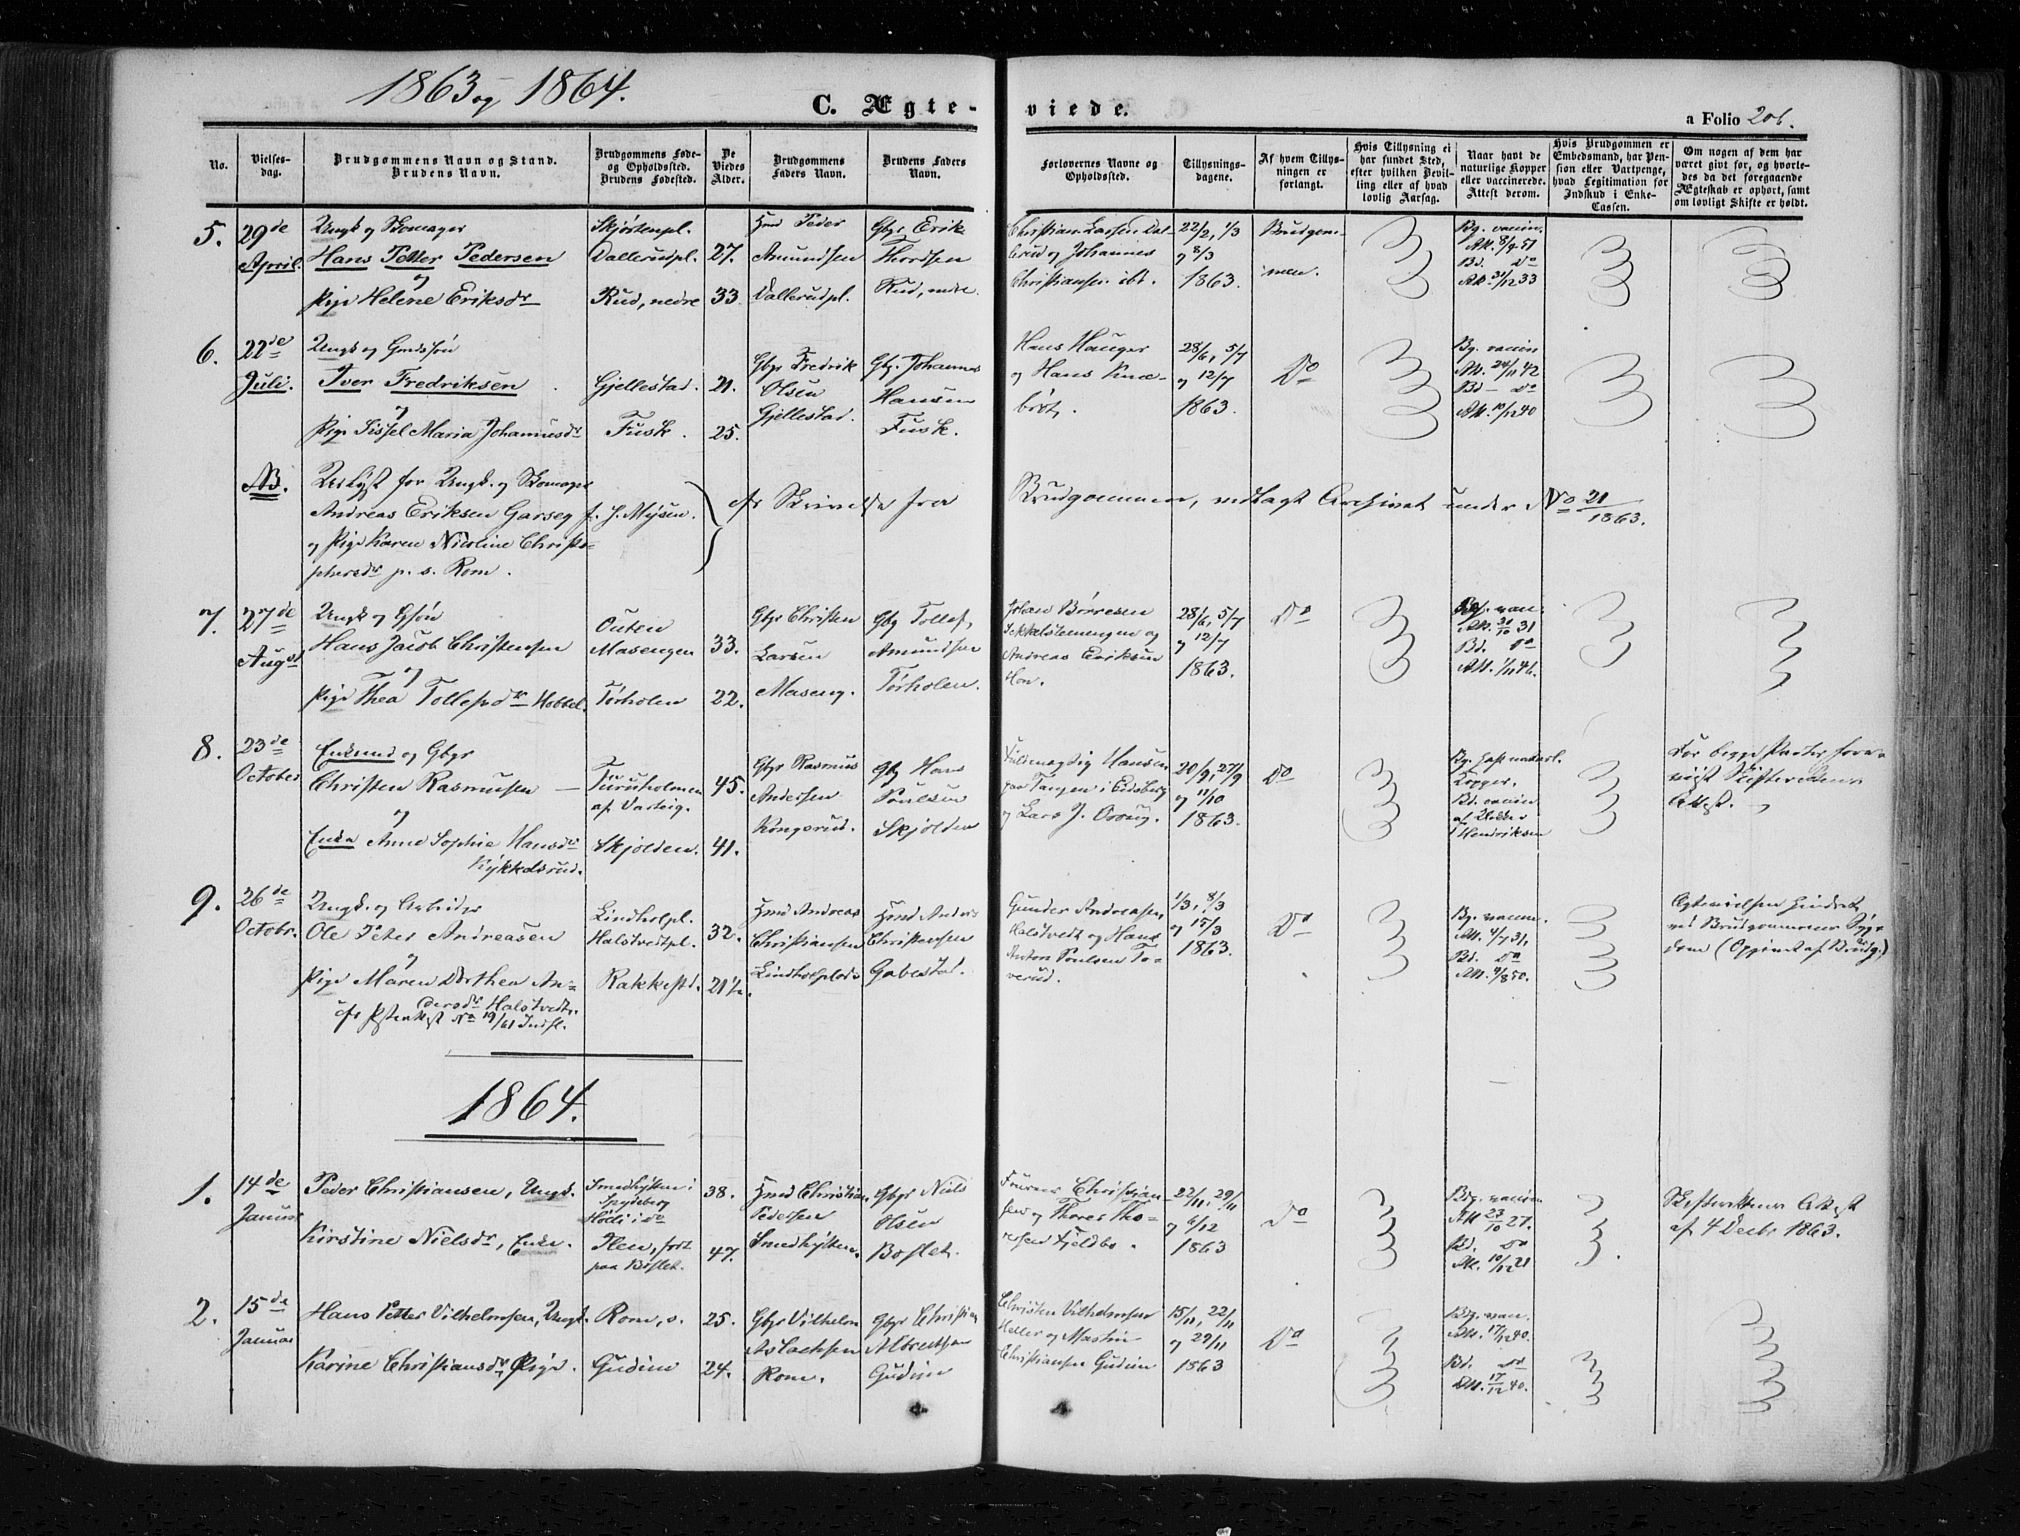 1863 og 1864.
C. Ægteviede.
a Folio 206.
No.
Vielses-
dag.
Brudgommens Navn og Stand.
Brudens Navn.
Brudgommens Føde-
og Opholdssted.
Brudens Fødested.
De
Viedes
Alder.
Brudgommens
Faders Navn.
Brudens Faders
Navn.
Forlovernes Navne og
Opholdssted.
Tillysnings-
dagene.
Af hvem Tillys-
ningen er
forlangt.
Hvis Tillysning ei
har fundet Sted,
efter hvilken Bevil-
ling eller af hvad
lovlig Aarsag.
Naar havt de
naturlige Kopper
eller vaccinerede.
Attest derom.
Hvis Brudgommen er
Embedsmand, har Pen-
sion eller Vartpenge,
hvad Legitimation for
Indskud i Enke-
Cassen.
Om nogen af dem har
været givt før, og hvorle-
des da det foregaaende
Ægteskab er ophørt, samt
om lovligt Skifte er holdt.
5.
29de
April.
Ungk. og Skomager
Hans Petter Pedersen
og
Pige Helene Eriksdr
Skjørtenpl.
Dallerudpl.
Rud, nedre
27.
33
Hmd Peder
Amundsen
Dallerudpl.
Gbr Erik
Thordsen
Rud, nedre.
Christian Larsen Dal-
lerud og Johannes
Christiansen ibt.
22/2, 1/3
og 8/3
1863.
Brudgom-
men.
Bg. vaccin.
Att. 8/9 51
Bd. Do
Att. 31/12 33
6.
22de
Juli.
Ungk og Gmdssøn
Iver Fredriksen
og
Pige Sissel Maria Johannesdr
Gjellestad.
Fusk.
21.
25.
Gbr Fredrik
Olsen
Gjellestad.
Gbr. Johannes
Hansen
Fusk.
Hans Hauger
og Hans Knæ-
børt.
28/6, 5/7
og 12/7
1863.
Do
Bg. vaccin
Att. 24/11 42
Bd – Do
Att. 10/12 40
NB.
Udlyst for Ungk. og Skomager
Andreas Eriksen Garseg f. H. Mysen.
og Pige Karen Nicoline Christo-
phersdr p. s. Rom.
efr Skrivelse fra Brudgommen, vedlagt Archivet under No 21/1863.
7.
27de
August
Ungk og Gsøn
Hans Jacob Christensen
og
Pige Thea Tollefsdr Hobbel.
Outen
Masengen
Tørholen
33.
22.
Gbr Christen
Larsen
Maseng.
Gbr Tollef
Amundsen
Tørholen.
Johan Børresen
og
Andreas Eriksen
Hon.
28/6, 5/7
og 12/7
1863.
Do
Bg. vacc.
Att. 30/10 31
Bd. Do
Att. 1/11 46.
8.
23de
October
Enkemd og Gbr
Christen Rasmussen
og
Enke Anne Sophie Hansdr
Kykkelsrud.
Furuholmen
af Vardeig.
Skjolden.
45.
41.
Gbr Rasmus
Andersen
Kongsrud.
Gbr Hans
Poulsen
Skjolden
Fuldmægtig Hansen
paa Tangen i Eidsberg
og Lars J. Ovong.
20/9, 27/9
og 11/10
1863.
Do
Bg. havt naturl.
Kopper.
Bd. vaccin
af
Hendriksen
For begge Parter fore-
vist Skifterettens
Attest.
9.
26de
Octobr.
Ungk. og Arbeider
Ole Peter Andreasen
og
Pige Maren Dorthea An-
dersdr Halstvedt.
efr Præsteattest No 19/61 Indfl.
Lindholpl.
Halstvedtpl.
Rakkestd.
32.
21½.
Hmd Andreas
Christiansen
Hmd Anders
Christensen
Gabestad.
Gunder Andreasen
Halstvedt og Hans
Anton Poulsen To-
verud.
1/3, 8/3
og 15/3
1863.
Do
Bg. vaccin.
Att. 4/7 31.
Bd. Do
Att. 4/8 50.
Ægtevielsen hindret
ved Brudgommens Syg-
dom (Opgivet af Brudg.)
1864.
1.
14de
Januar
Peder Christiansen, Ungk.
Kirstine Nielsdr, Enke.
Smedhytten i
Spydeberg
Hølli i do
Ilen, født
paa Bøflet.
38.
47.
Hmd Christian
Pedersen
Smedhytten.
Gbr Niels
Olsen
Bøflet.
Christian-
sen og Thores Tho-
resen Fjeldbo.
22/11, 29/11
og 6/12
1863
Do
Bdg. vaccin
Att 23/10 27.
Bd. Do
Att. 10/12 21
Skifterettens Attest
af 4 Decbr 1863.
2.
15de
Januar
Hans Petter Vilhelmsen, Ungk.
Karine Christiansdr, Pige.
Rom, s.
Gudim
25.
24.
Gbr Vilhelm
Aslachsen
Rom.
Gbr Christian
Albrechtsen
Gudim
Christen Vilhelmsen
Heller og Martin
Christiansen Gudim
15/11, 22/11
og 29/11
1863
Do
Bg. vacc.
Att. 17/12 40.
Bd. Do
Att. 17/12 40.